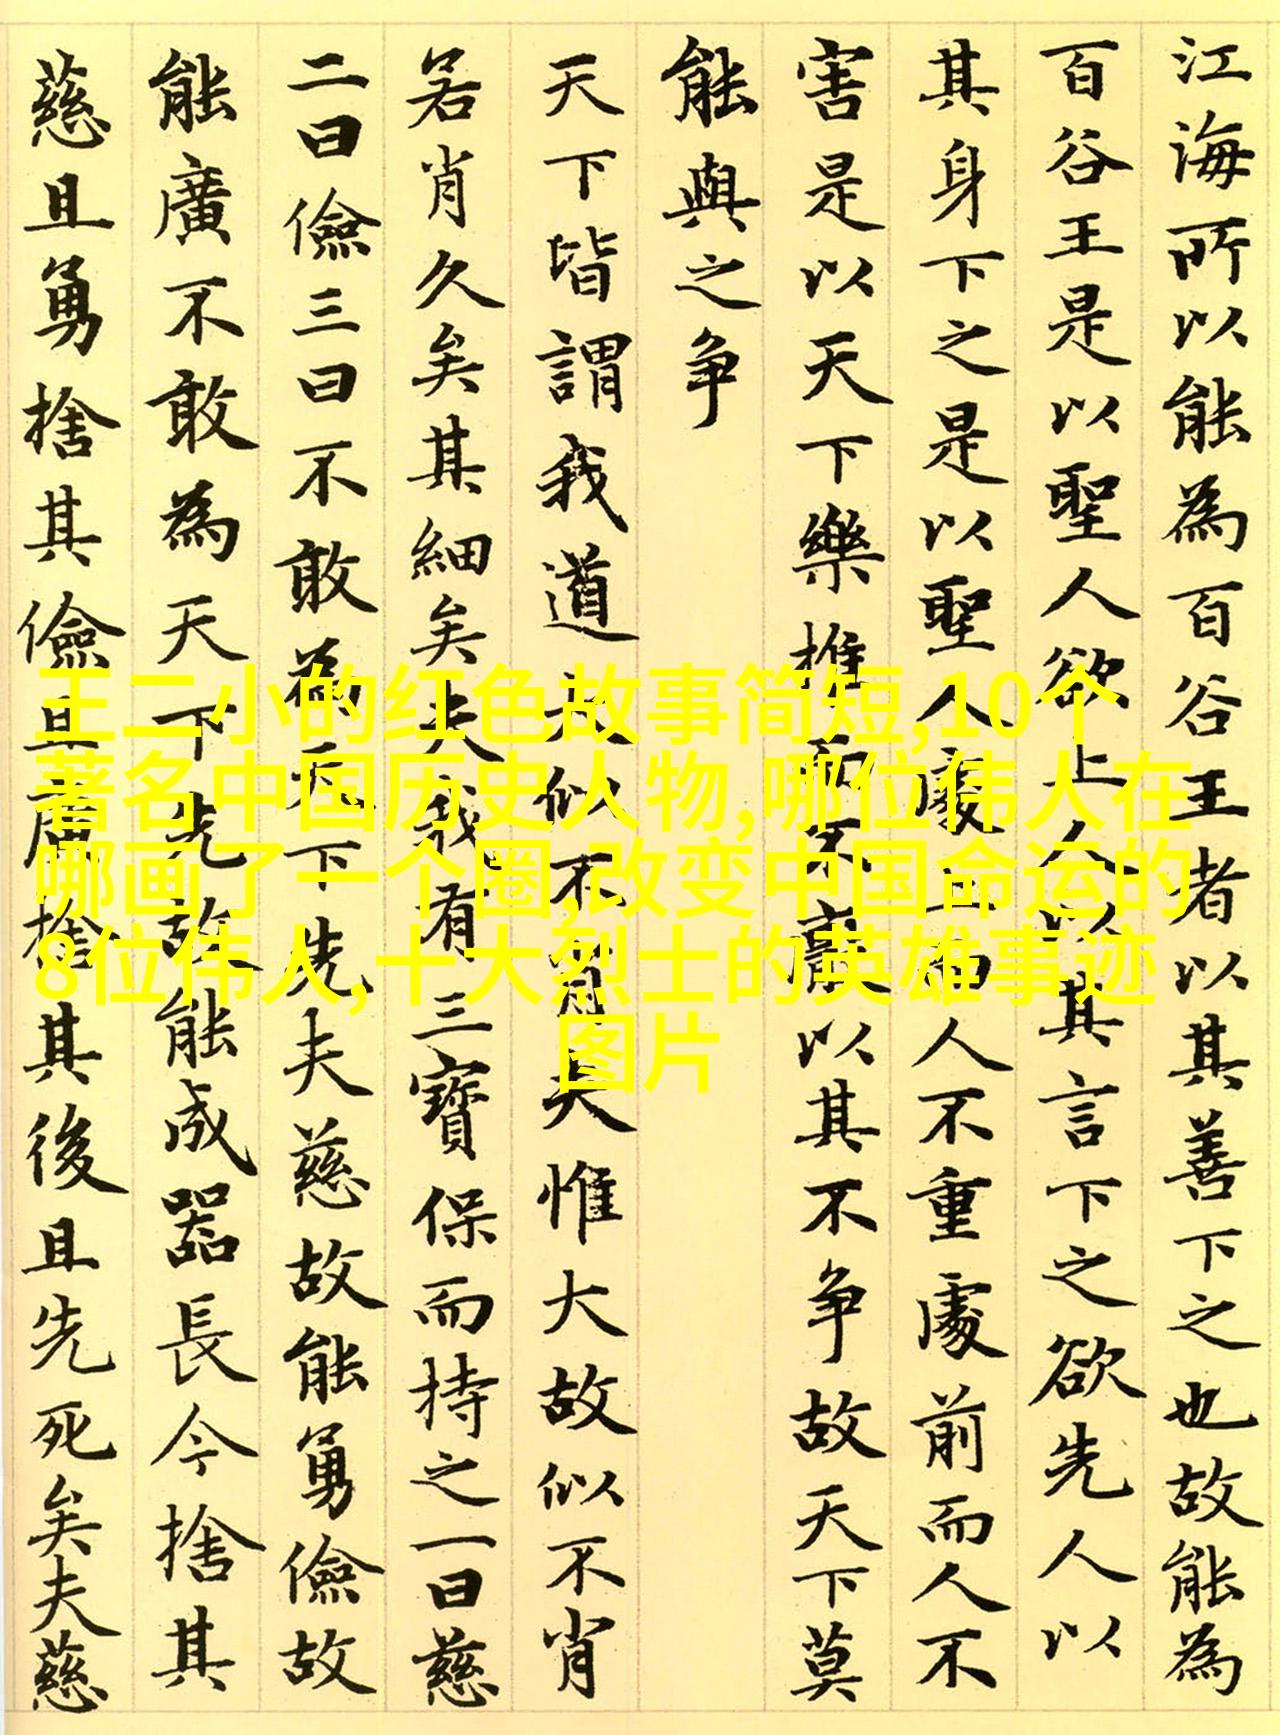 江海所以能為百谷王者以其善下之也故能為
百谷王是以聖人欲上人以其言下之欲先人以
其身下之是以聖人處上而人不重處前而人不
害是以天下樂推而不厭以其不争故天下莫
能與之争
天下皆謂我道大似不肖夫惟大故似不肖
若肖久矣其細矣夫我有三寶保而持之一曰慈
二曰儉三曰不敢為天下先夫慈故能勇儉故
能廣不敢為天下先故能成器長今捨其
慈且勇捨其儉且廣捨其後且先死矣夫慈
王二小的红色故事简短,10个
著名中国历史人物,哪位伟人在
哪画了一个圈,改变中国命运的
8位伟人,十大烈士的英雄事迹
图片